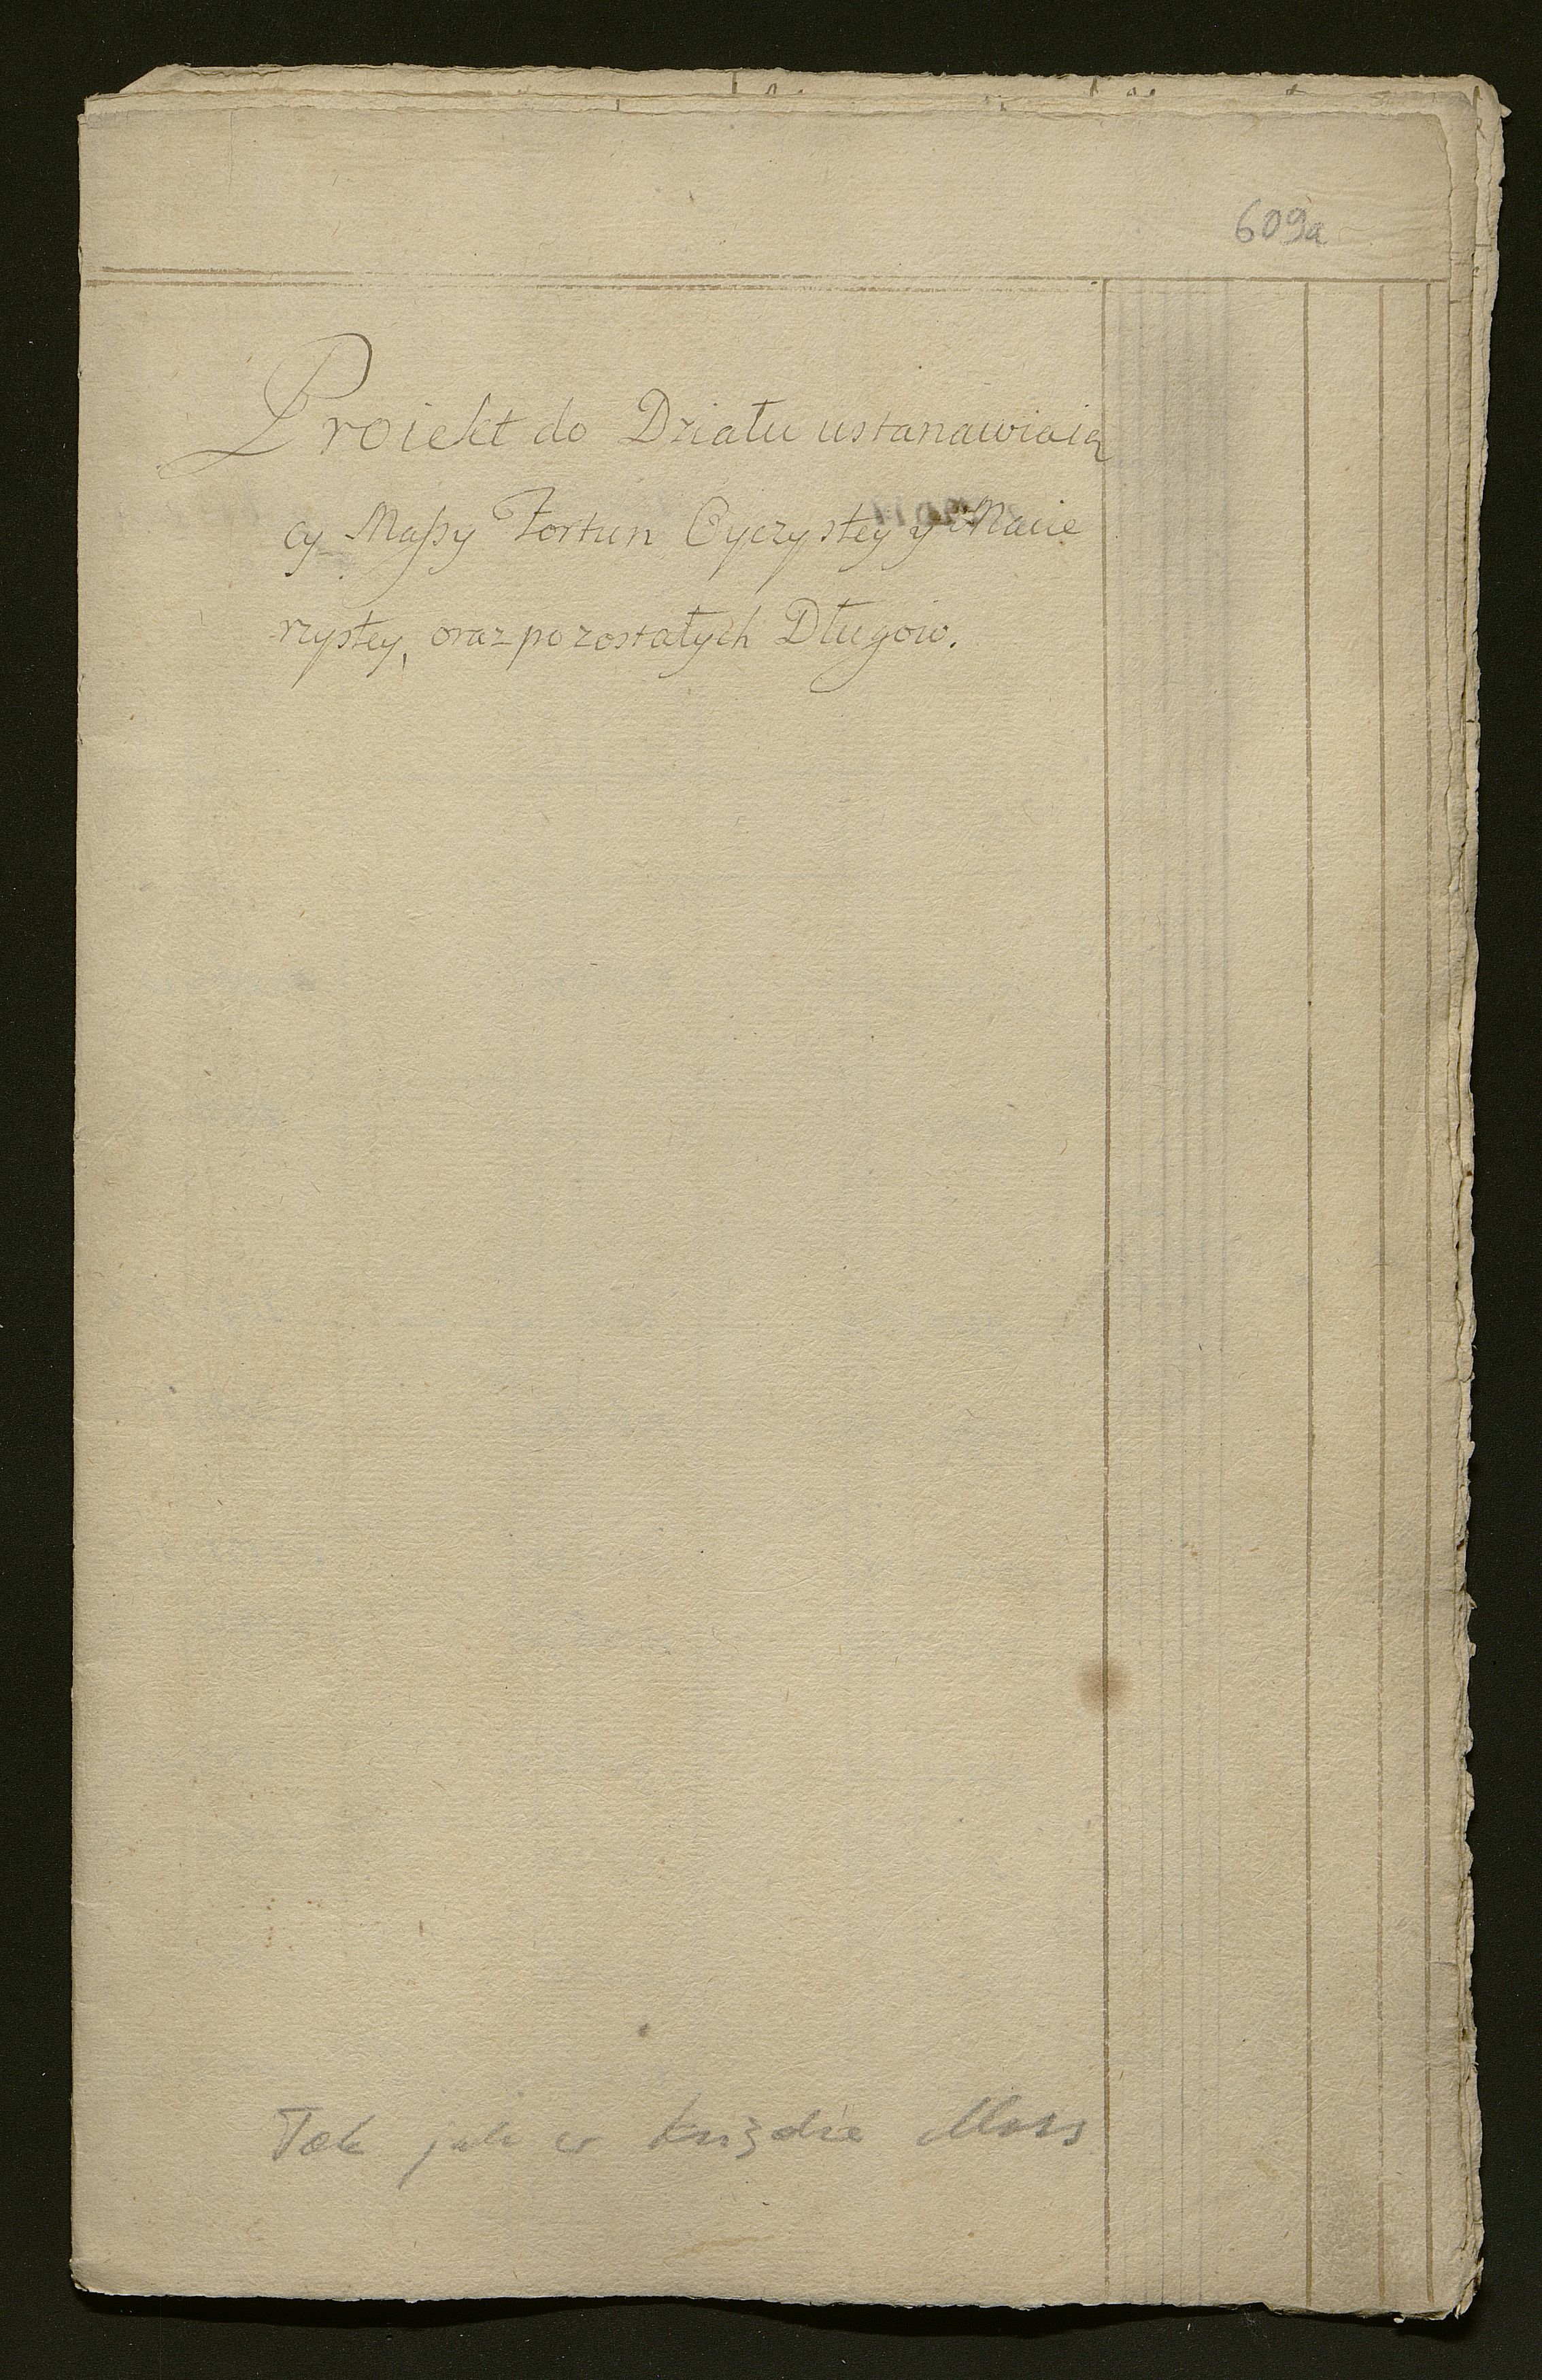 609a
Proiekt do Działu ustanawiaią
cy Massy Fortun Oyczystey y Macie
rzystey, oraz pozostałych Długow.
Tak jak w